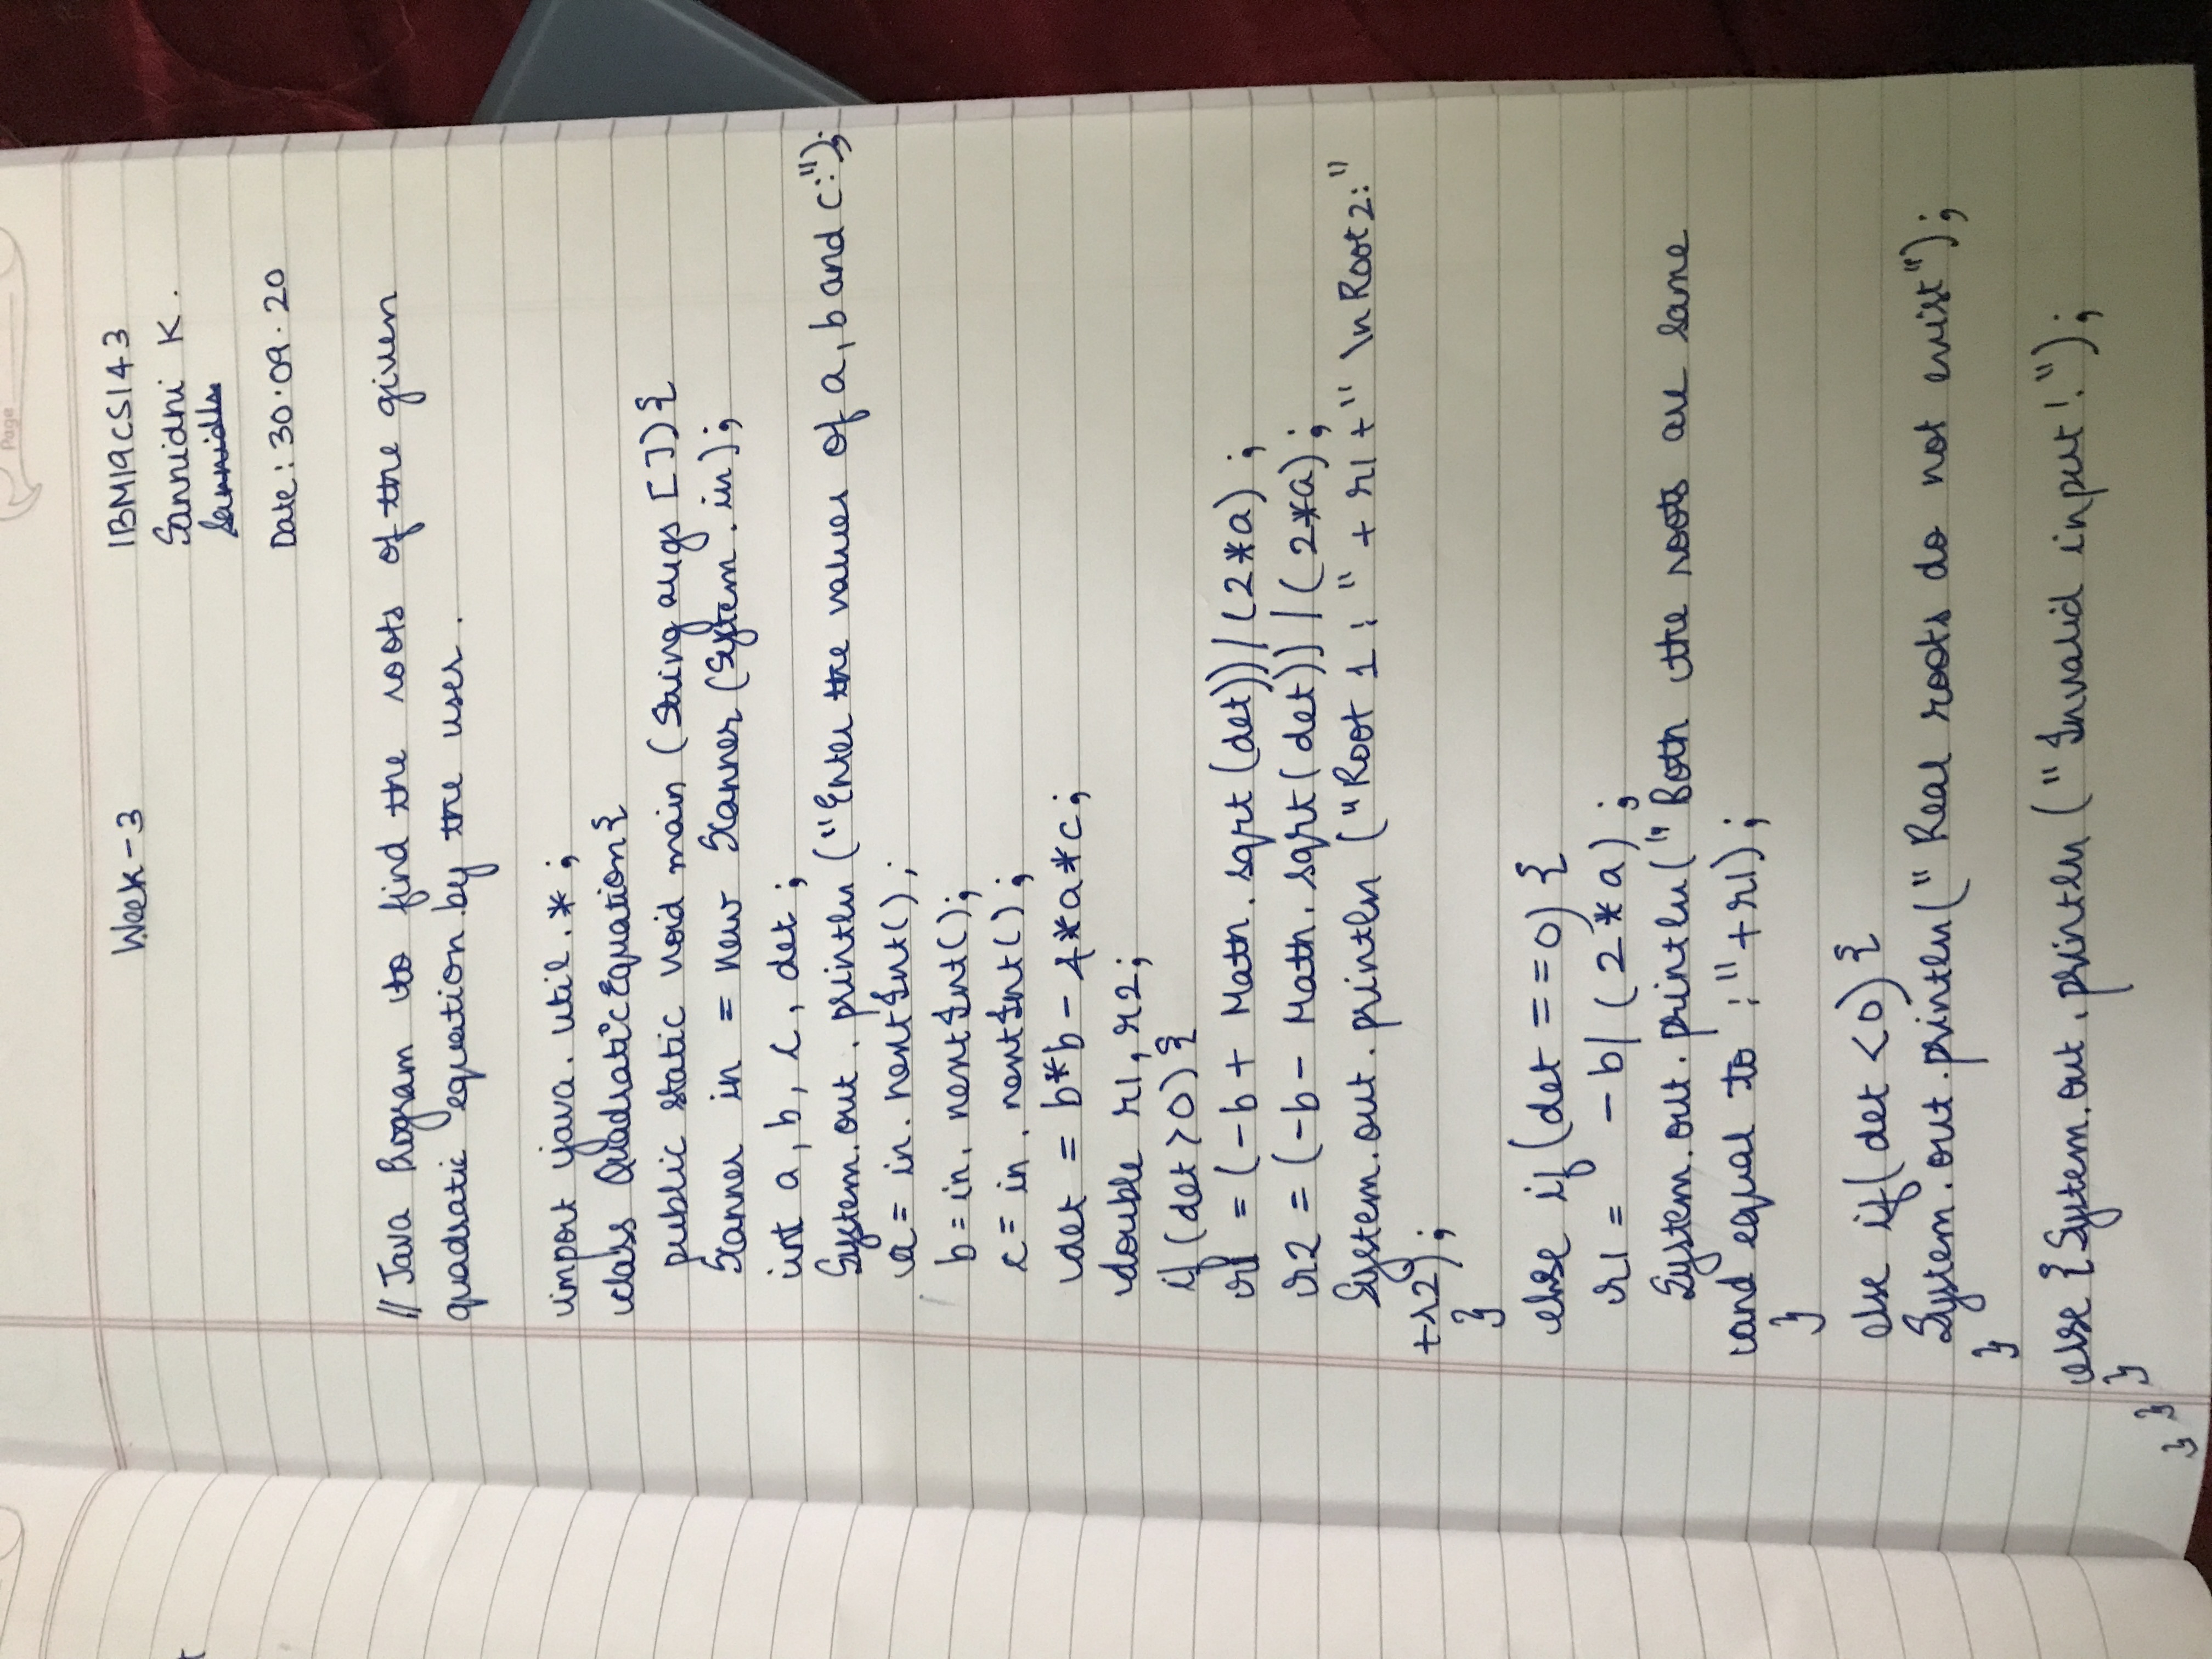 Page
Week-3
1BM19CS143
Sannidhi K.
Date: 30.09.20
// Java Program to find the roots of the given
quadratic equation by the user.
import java.util.*;
class QuadraticEquation{
public static void main (String args []){
Scanner in = new Scanner (System.in);
int a, b, c, det;
System.out.println ("Enter the values of a, b and c:");
a = in.nextInt();
b = in.nextInt();
c = in.nextInt();
det = b*b - 4*a*c;
double r1, r2;
if (det > 0) {
r1 = (-b + Math.sqrt (det)) / (2*a);
r2 = (-b - Math.sqrt (det)) / (2*a);
System.out.println ("Root 1: " + r1 + " \n Root 2:"
+r2);
}
else if (det == 0) {
r1 = -b / (2*a);
System.out.println (" Both the roots are same
and equal to :" + r1);
}
else if (det < 0) {
System.out.println (" Real roots do not exist");
}
else { System.out.println ("Invalid input!");
}
}
}